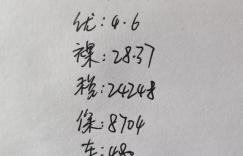 优:4.6
裸:28.37
税:24248
保:8704
车:480